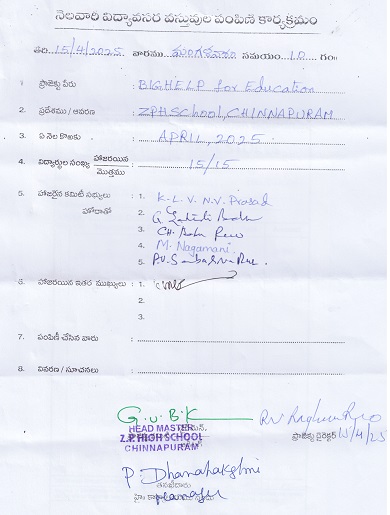 నెలవారి విద్యావసర వస్తువుల పంపిణీ కార్యక్రమం
తేది 15/4/2025 వారము మంగళవారం సమయం 10 గం॥
1 ప్రాజెక్టు పేరు : BIGHELP for Education
2. ప్రదేశము / ఆవరణ : ZPHSchool, CHINNAPURAM
3. ఏ నెల కొరకు : APRIL, 2025
4. విద్యార్థుల సంఖ్య హాజరయిన / మొత్తము : 15/15
5. హాజరైన కమిటీ సభ్యులు : 1. K.L.V.N.V. Prasad
హోదాతో 2. G.
3. CH.
4. M. Nagamani
5. P.V.
6. హాజరయిన ఇతర ముఖ్యులు : 1.
2.
3.
7. పంపిణీ చేసిన వారు :
8. వివరణ / సూచనలు :
G.V.B.K
HEAD MASTER
Z.P.HIGH SCHOOL
CHINNAPURAM
ప్రాజెక్టు డైరెక్టర్ 15/4/25
P. Dhanalakshmi